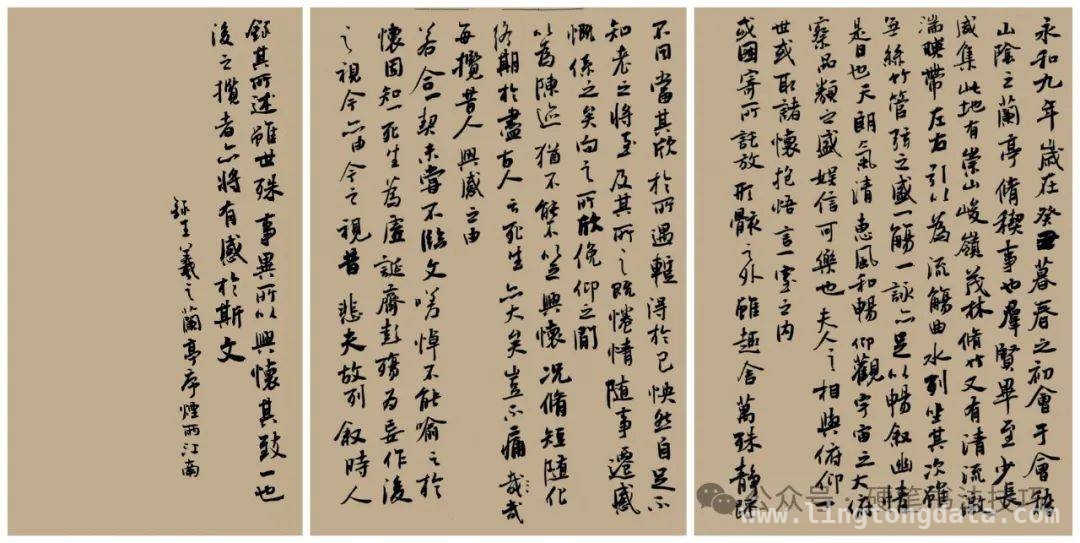 永和九年歲在癸丑暮春之初會于會稽
山陰之蘭亭脩稧事也羣賢畢至少長
咸集此地有崇山峻嶺茂林脩竹又有清流激
湍暎帶左右引以為流觴曲水列坐其次雖
無絲竹管弦之盛一觴一詠亦足以暢叙幽情
是日也天朗氣清惠風和暢仰觀宇宙之大俯
察品類之盛娛信可樂也夫人之相與俯仰一
世或取諸懷抱悟言一室之内
或因寄所託放形骸之外雖趣舍萬殊静躁
不同當其欣於所遇蹔得於己怏然自足不
知老之將至及其所之既惓情隨事遷感
慨係之矣向之所欣俛仰之間
以為陳迹猶不能不以之興懷況脩短隨化
終期於盡古人云死生亦大矣豈不痛哉哉
每攬昔人興感之由
若合一契未嘗不臨文嗟悼不能喻之於
懷固知一死生為虛誕齊彭殤為妄作後
之視今亦由今之視昔悲夫故列叙時人
錄其所述雖世殊事異所以興懷其致一也
後之攬者亦將有感於斯文
錄王羲之蘭亭序煙雨江南
公众号：硬笔书法技巧
www.lingtongdata.com